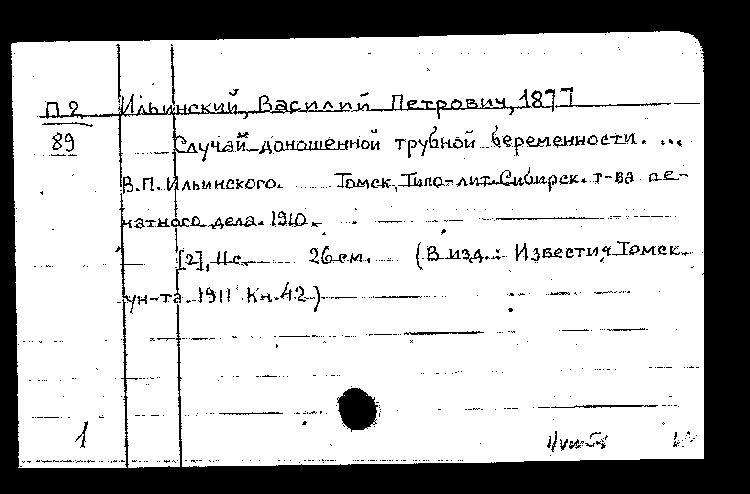 П2
89
Ильинский, Василий Петрович, 1877
Случай доношенной трубной беременности. ...
В.П. Ильинского. Томск, Типо-лит. Сибирск. т-ва пе-
чатного дела. 1910.
[2], 11 с. 26 см. (В изд.: Известия Томск.
ун-та. 1911 Кн. 42)
1